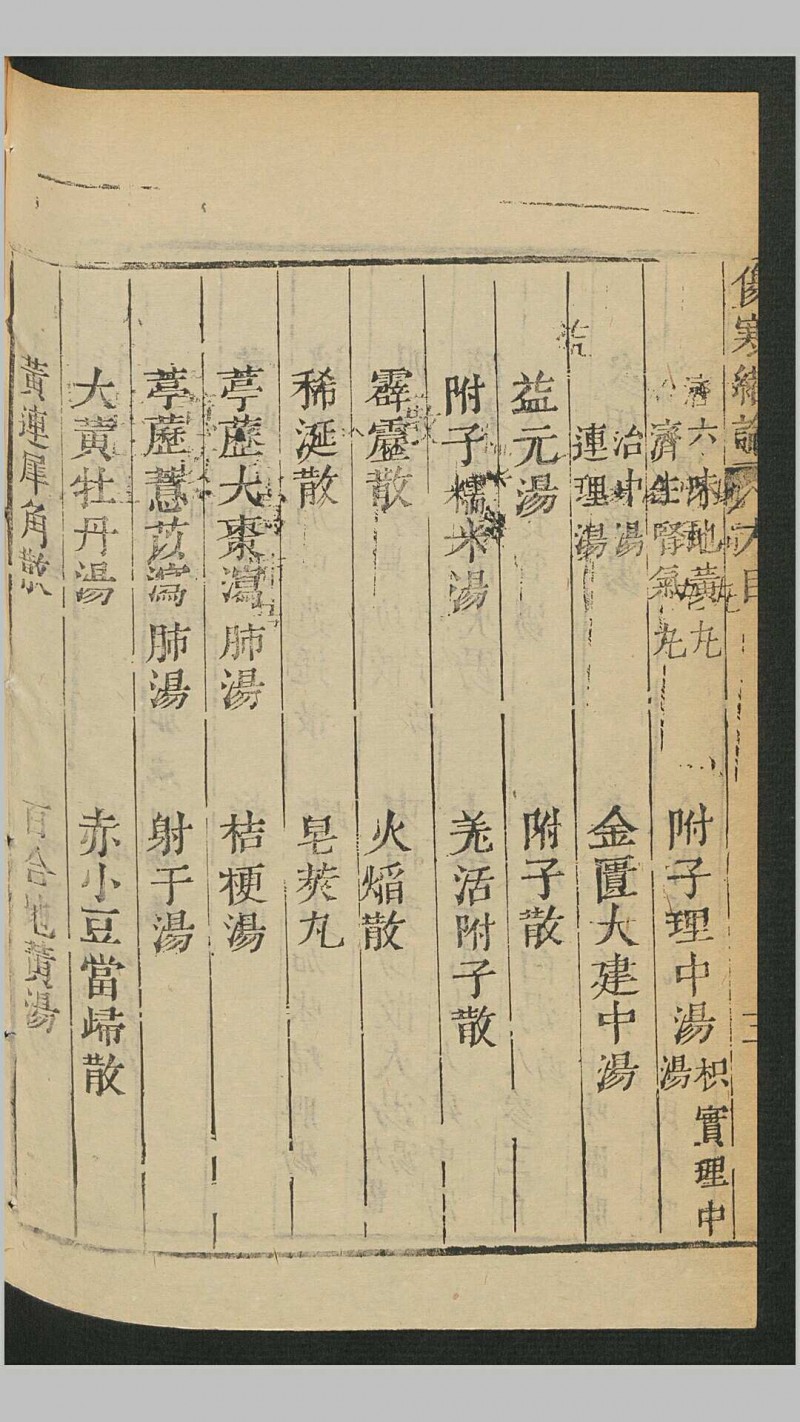 傷寒緒論 目 三
六味地黃丸
濟生腎氣丸
附子理中湯
枳實理中
湯
治中湯
連理湯
金匱大建中湯
益元湯
附子散
附子糯米湯
羌活附子散
霹靂散
火焰散
稀涎散
皂莢丸
葶藶大棗瀉肺湯
桔梗湯
葶藶薏苡瀉肺湯
射干湯
大黃牡丹湯
赤小豆當歸散
黃連犀角散
百合地黃湯